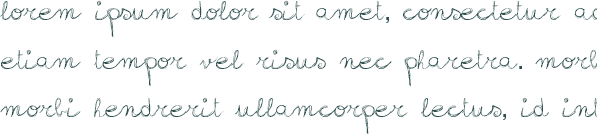 lorem ipsum dolor sit amet, consectetur ac
etiam tempor vel risus nec pharetra. morb
morbi hendrerit ullamcorper lectus, id int